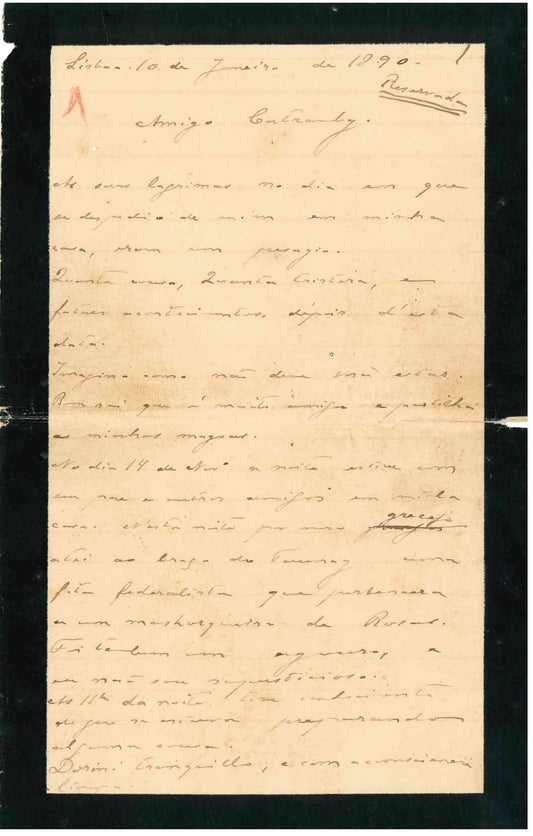 1
Lisboa. 10 de Janeiro de 1890.
Reservada
1
Amigo Catramby.
As suas lagrimas no dia em que
se despedio de mim em minha
casa, eram um presagio.
Quanta cousa, Quanta tristeza, e
fataes acontecimentos, depois d'esta
data.
Imagino como não deve você estar.
Bem sei que é muito amigo e partilha
as minhas magoas.
No dia 14 de Novº a noite estive com
seu pae e outros amigos em minha
casa. N'esta noite por mero gracejo
atei ao braço do Taunay uma
fita federalista que pertencera
a um mashorqueiro de Rosas.
Foi tambem um agouro, e
eu não sou supersticioso.
As 11hs da noite. tive conhecimento
de que se estava preparando
alguma cousa.
Dormi tranquillo, e com a consciencia